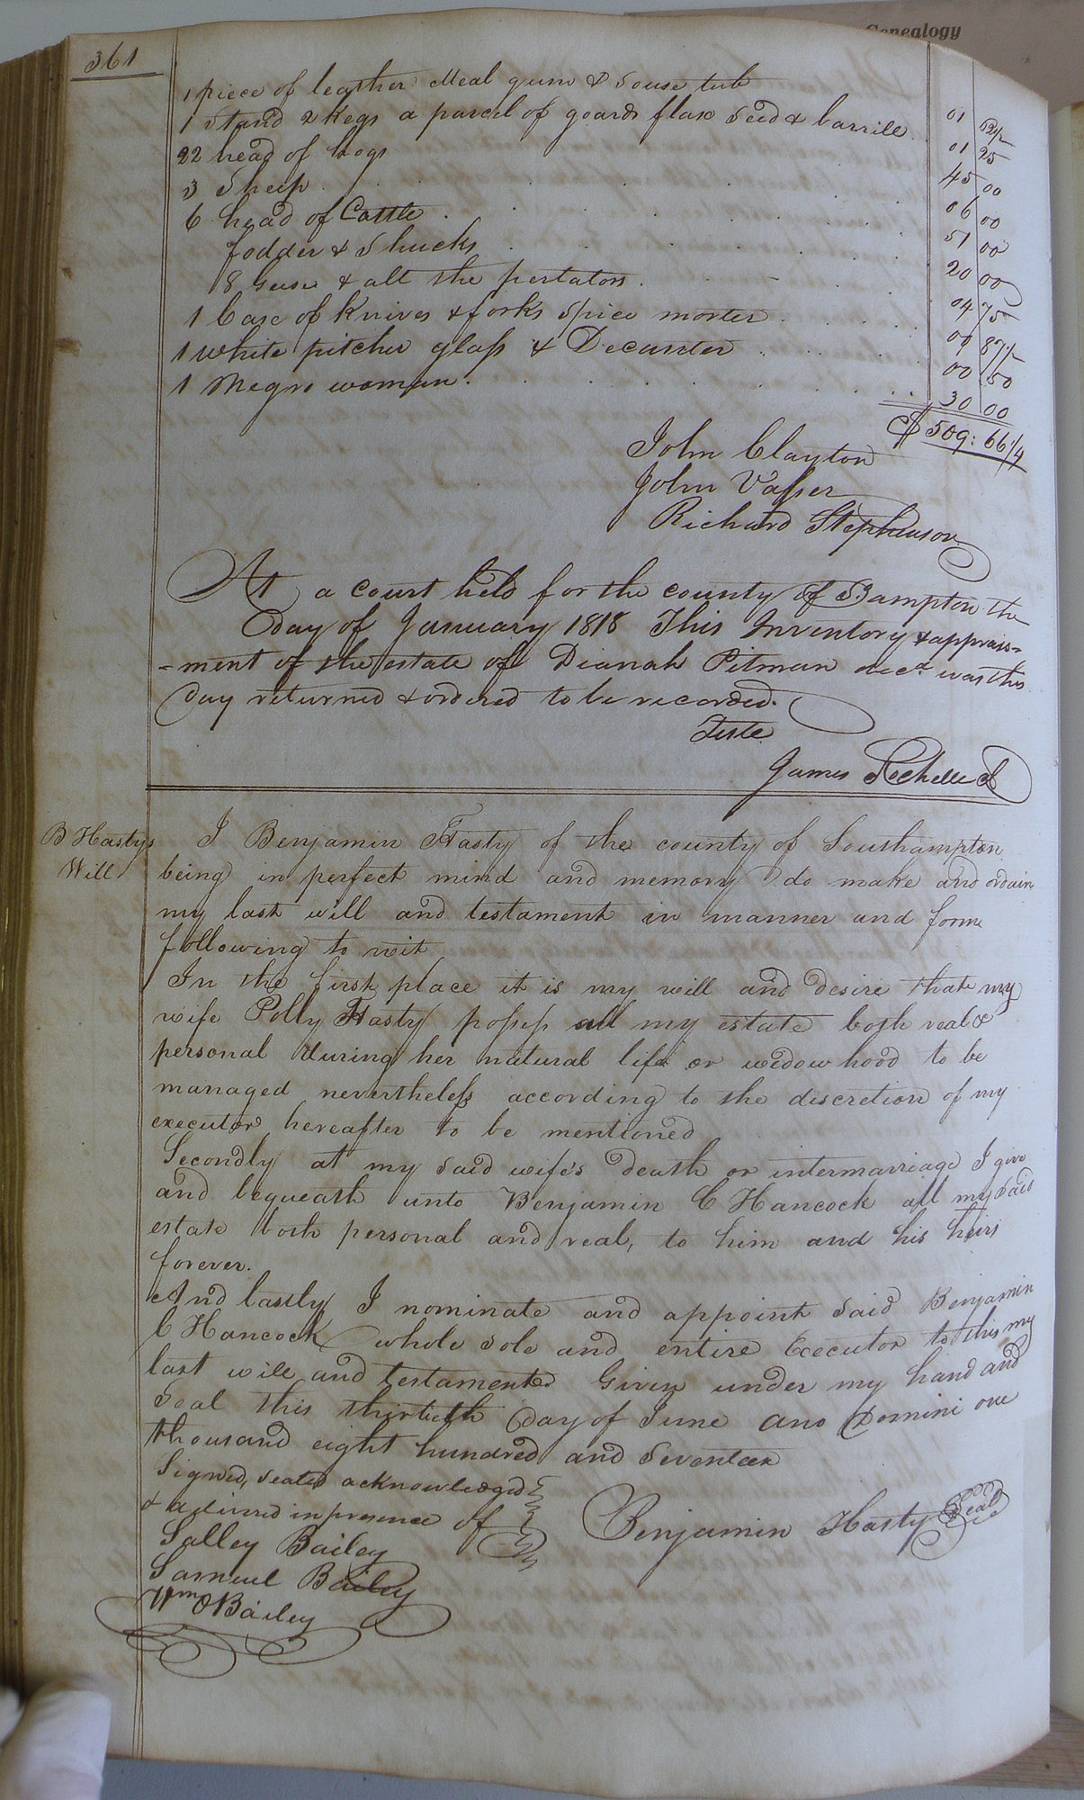 Genealogy
361
1 piece of leather Meal gum & Souse tub 01 52 1/2
1 Stand 2 Kegs a parcel of goards flax Seed & barrill 01 25
22 head of hogs 45 00
3 Sheep 06 00
6 head of Cattle 51 00
fodder & Shucks 20 00
8 Geese & all the pertators 04 75
1 Case of Knives & forks Spice morter 00 87 1/2
1 white pitcher glass & Decanter 00 50
1 Negro woman 30 00
$ 509: 66 1/4
John Clayton
John Vasser
Richard Stephenson
At a court held for the county of Sampton the
day of January 1818 This Inventory & appraise=
-ment of the estate of Dianah Pitman decd. was this
day returned & ordered to be recorded.
Teste
James Rochelle
B Hastys
Will
I Benjamin Hasty of the county of Southampton
being in perfect mind and memory do make and ordain
my last will and testament in manner and form
following to wit
In the first place it is my will and desire that my
wife Polly Hasty possess all my estate both real &
personal during her natural life or widow hood to be
managed nevertheless according to the discretion of my
executor hereafter to be mentioned
Secondly at my said wife's death or intermarriage I give
and bequeath unto Benjamin C Hancock all my said
estate both personal and real, to him and his heirs
forever.
And lastly I nominate and appoint said Benjamin
C Hancock whole sole and entire Executor to this my
last will and testament Given under my hand and
Seal this thirtieth day of June Ano Domini one
thousand eight hundred and Seventeen
Signed, sealed acknowledged
& in presence of
Benjamin Hasty Seal
Salley Bailey
Samuel Bailey
Wm O Bailey